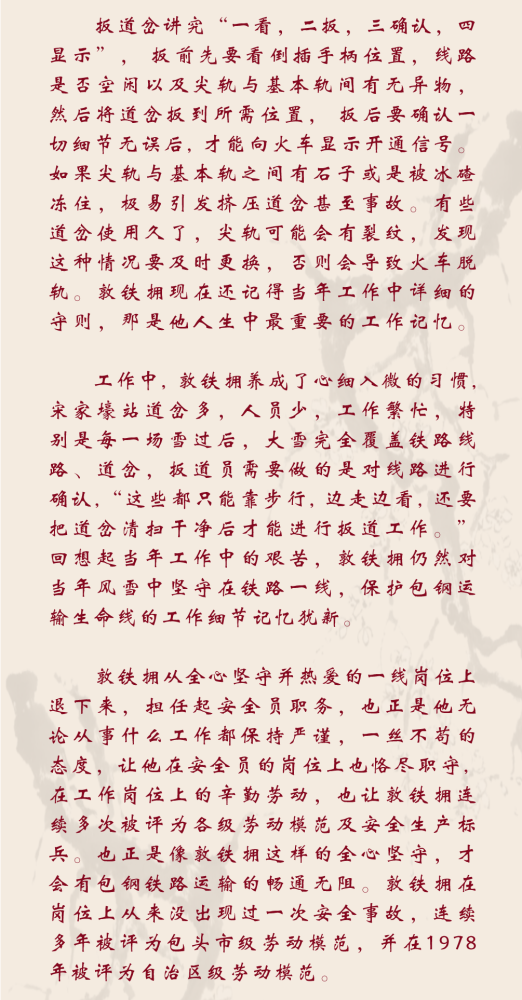 扳道岔讲究“一看，二扳，三确认，四
显示”，扳前先要看倒插手柄位置，线路
是否空闲以及尖轨与基本轨间有无异物，
然后将道岔扳到所需位置，扳后要确认一
切细节无误后，才能向火车显示开通信号。
如果尖轨与基本轨之间有石子或是被冰碴
冻住，极易引发挤压道岔甚至事故。有些
道岔使用久了，尖轨可能会有裂纹，发现
这种情况要及时更换，否则会导致火车脱
轨。敦铁拥现在还记得当年工作中详细的
守则，那是他人生中最重要的工作记忆。
工作中，敦铁拥养成了心细入微的习惯，
宋家壕站道岔多，人员少，工作繁忙，特
别是每一场雪过后，大雪完全覆盖铁路线
路、道岔，扳道员需要做的是对线路进行
确认，“这些都只能靠步行，边走边看，还要
把道岔清扫干净后才能进行扳道工作。”
回想起当年工作中的艰苦，敦铁拥仍然对
当年风雪中坚守在铁路一线，保护包钢运
输生命线的工作细节记忆犹新。
敦铁拥从全心坚守并热爱的一线岗位上
退下来，担任起安全员职务，也正是他无
论从事什么工作都保持严谨，一丝不苟的
态度，让他在安全员的岗位上也恪尽职守，
在工作岗位上的辛勤劳动，也让敦铁拥连
续多次被评为各级劳动模范及安全生产标
兵。也正是像敦铁拥这样的全心坚守，才
会有包钢铁路运输的畅通无阻。敦铁拥在
岗位上从来没出现过一次安全事故，连续
多年被评为包头市级劳动模范，并在1978
年被评为自治区级劳动模范。